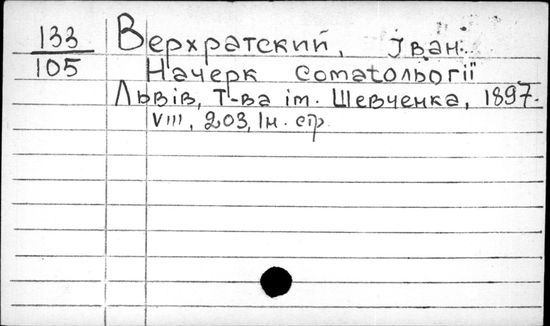 133 Верхратский, Іван.
105 Начерк соматольогії
Львів, Т-ва ім. Шевченка, 1897.
VIII, 203, Ін. стр.